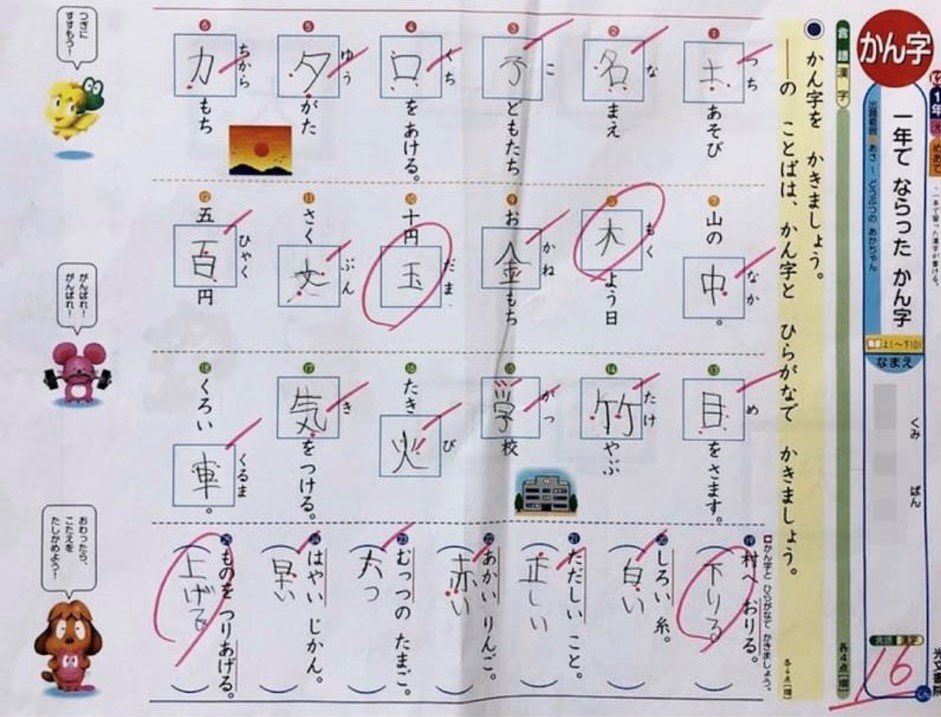 かん字
1年
一年で ならった かん字
出題範囲 あさ ~ どうぶつの あかちゃん
上1~下101
なまえ
くみ
ばん
言語 漢字
16
光文書院
言語 漢字
各4点
かん字を かきましょう。
――の ことばは、かん字と ひらがなで かきましょう。
① 土 つち あそび
② 名 な まえ
③ 子 こ どもたち
④ 口 くち をあける。
⑤ 夕 ゆう がた
⑥ 力 ちから もち
⑦ 山の 中 なか 。
⑧ 木 もく よう日
⑨ お 金 かね もち
⑩ 十円 玉 だま
⑪ さく 文 ぶん
⑫ 五 百 ひゃく 円
⑬ 目 め をさます。
⑭ 竹 たけ やぶ
⑮ 学 がっ 校
⑯ たき 火 び
⑰ 気 き をつける。
⑱ くろい 車 くるま 。
かん字と ひらがなで かきましょう。
各4点
⑲ 村へ おりる。 (下りる)
⑳ しろい 糸。 (白い)
㉑ ただしい こと。 (正しい)
㉒ あかい りんご。 (赤い)
㉓ むっつの たまご。 (六つ)
㉔ はやい じかん。 (早い)
㉕ ものを つりあげる。 (上げる)
つぎに すすもう!
がんばれ! がんばれ!
おわったら、 こたえを たしかめよう!